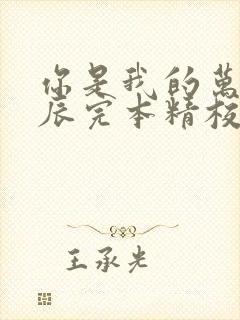 你是我的萬
辰完本精校
王承光